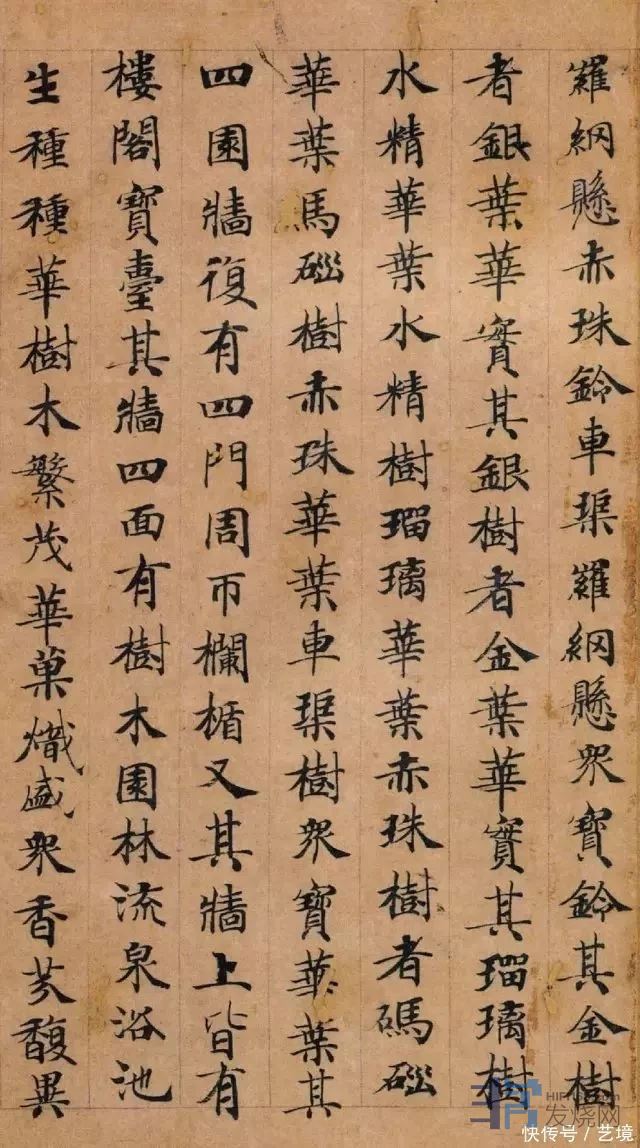 羅網懸赤珠鈴車璖羅網懸衆寶鈴其金樹
者銀葉華實其銀樹者金葉華實其瑠璃樹
水精華葉水精樹瑠璃華葉赤珠樹者碼碯
華葉馬碯樹赤珠華葉車璖樹衆寶華葉其
四園牆復有四門周帀欄楯又其牆上皆有
樓閣寶臺其牆四面有樹木園林流泉浴池
生種種華樹木繁茂華菓熾盛衆香芬馥異
HIFI
发烧网
快传号/艺境